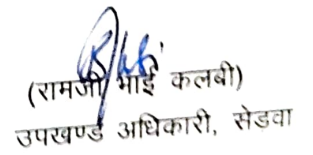 (रामजी भाई कलबी)
उपखण्ड अधिकारी, सेड़वा